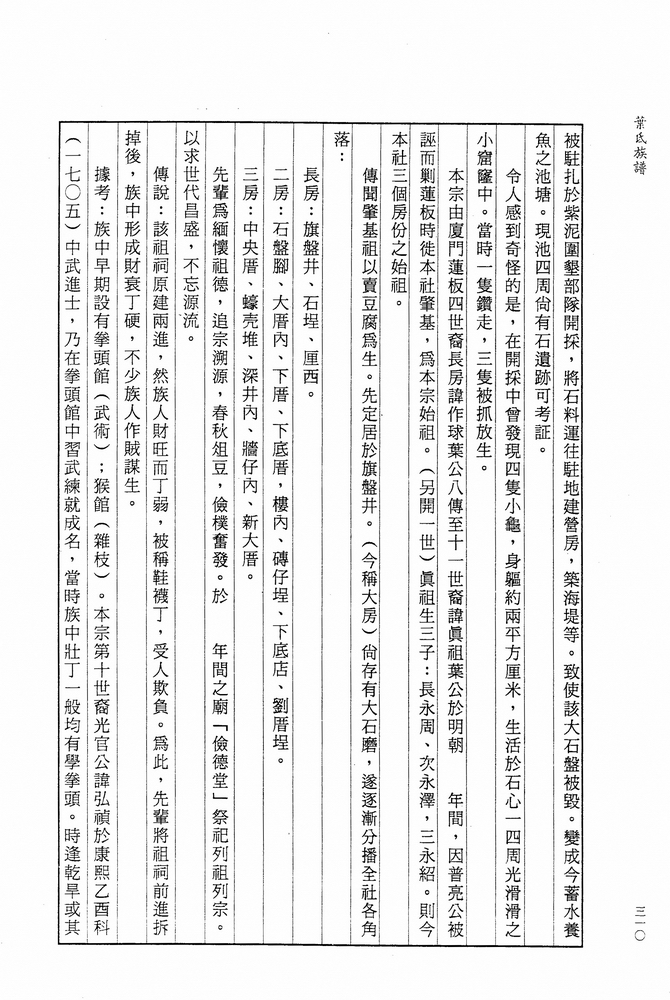 葉氏族譜
三一〇
被駐扎於紫泥圍墾部隊開採，將石料運往駐地建營房，築海堤等。致使該大石盤被毀。變成今蓄水養
魚之池塘。現池四周尙有石遺跡可考証。
令人感到奇怪的是，在開採中曾發現四隻小龜，身軀約兩平方厘米，生活於石心一四周光滑滑之
小窟窿中。當時一隻鑽走，三隻被抓放生。
本宗由廈門蓮板四世裔長房諱作球葉公八傳至十一世裔諱眞祖葉公於明朝　　年間，因普亮公被
誣而剿蓮板時徙本社肇基，爲本宗始祖。（另開一世）眞祖生三子：長永周、次永澤，三永紹。則今
本社三個房份之始祖。
傳聞肇基祖以賣豆腐爲生。先定居於旗盤井。（今稱大房）尙存有大石磨，遂逐漸分播全社各角
落：
長房：旗盤井、石埕、厘西。
二房：石盤腳、大厝內、下厝、下底厝，樓內、磚仔埕、下底店、劉厝埕。
三房：中央厝、蠔壳堆、深井內、牆仔內、新大厝。
先輩爲緬懷祖德，追宗溯源，春秋俎豆，儉樸奮發。於　　年間之廟「儉德堂」祭祀列祖列宗。
以求世代昌盛，不忘源流。
傳說：該祖祠原建兩進，然族人財旺而丁弱，被稱鞋襪丁，受人欺負。爲此，先輩將祖祠前進拆
掉後，族中形成財衰丁硬，不少族人作賊謀生。
據考：族中早期設有拳頭館（武術）；猴館（雜枝）。本宗第十世裔光官公諱弘禎於康熙乙酉科
（一七〇五）中武進士，乃在拳頭館中習武練就成名，當時族中壯丁一般均有學拳頭。時逢乾旱或其